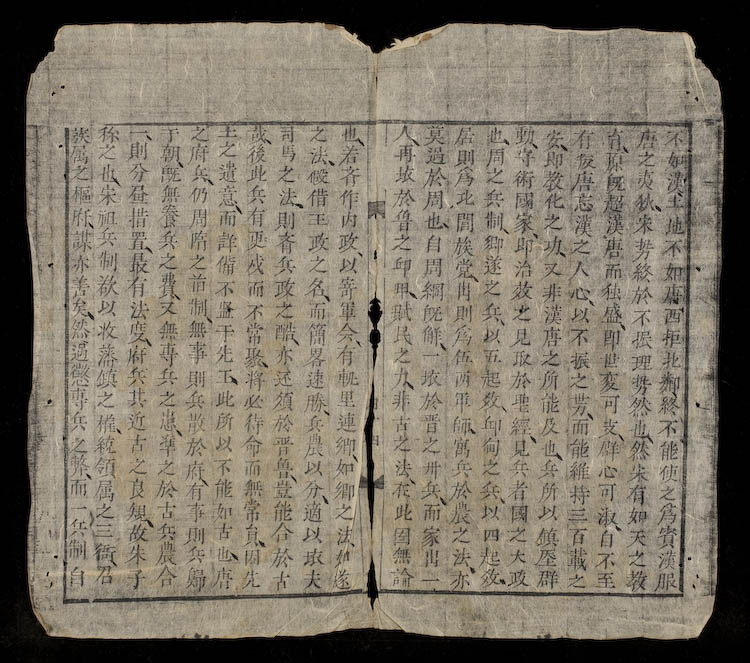 不如漢土地不如唐西拒北鄉終不能使之爲賓漢服
唐之夷狄宋势終於不振理势然也然宋有如天之教
育原既超漢唐而独盛即世变可支群心可淑自不至
有忘唐志漢之人心以不振之势而能維持三百載之
安即教化之功又非漢唐之所能及也兵所以鎮壓群
動守術國家即治效之見取於聖經見兵者國之大政
也周之兵制鄉遂之兵以五起敎邱甸之兵以四起敎
居則爲比閭族党出則爲伍两軍師寓兵於農之法亦
莫過於周也自周綱既解一坏於晋之州兵而家出一
人再坏於鲁之邱甲賦民之力非古之法在此固無論
也若斉作内政以寄軍令有軌里連鄉如鄉之法如遂
之法假借王政之名而簡畧速勝兵農以分適以坏夫
司馬之法則斉兵政之酷亦还須於晋魯豈能合於古
哉後此兵有更戍而不常聚将必待命而無常員因先
王之遺意而詳備不及于先王此所以不能如古也唐
之府兵仍周隋之旧制無事則兵散於府有事則兵歸
于朝既無養兵之費又無專兵之患準之於古兵農合
一則分昼措置最有法度府兵其近古之良規故朱子
称之也宋祖兵制欲以收藩鎮之権統領属之三衙召
族属之樞府謀亦善矣然過懲專兵之弊而一兵制自